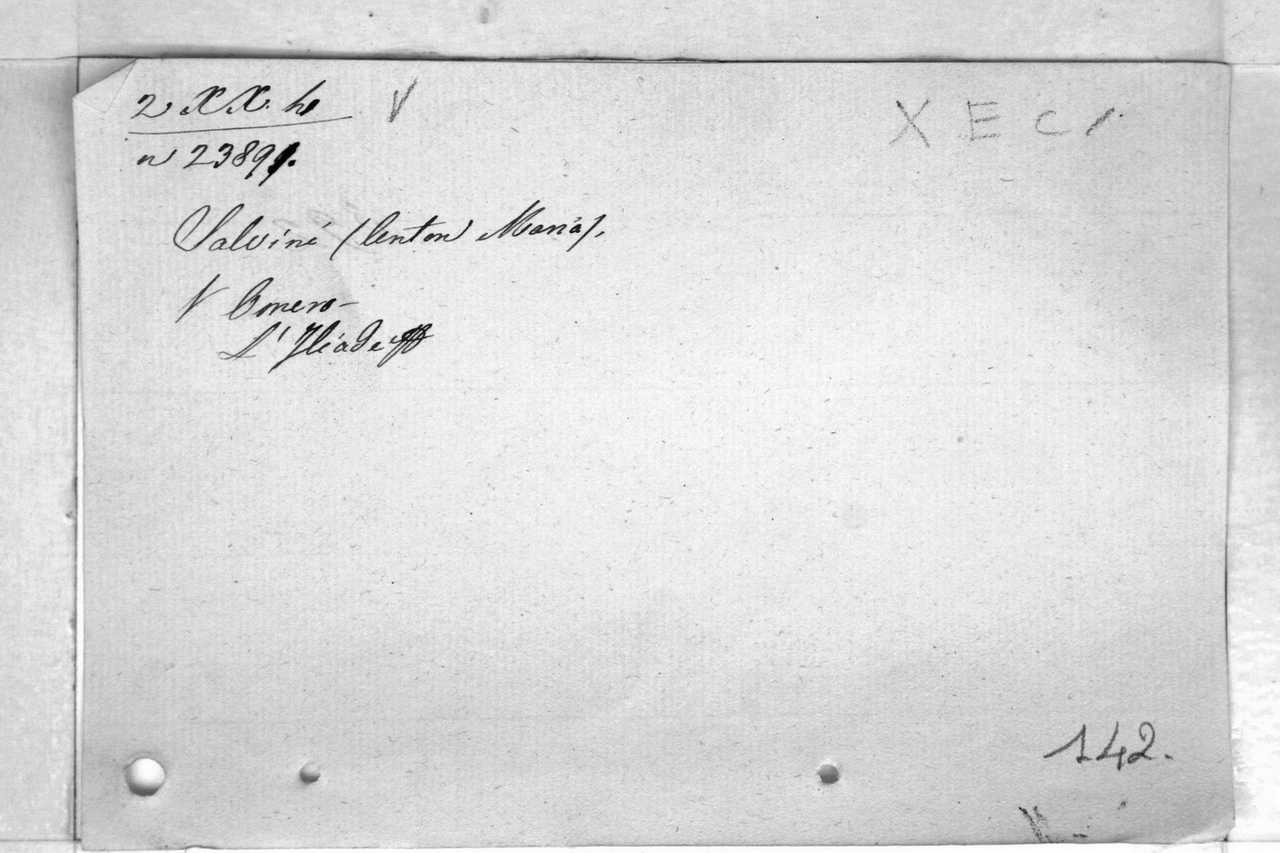 2 X X. h V
X E C
n 23891.
Salvini (Anton Maria),
V Omero-
L'Iliade
142.